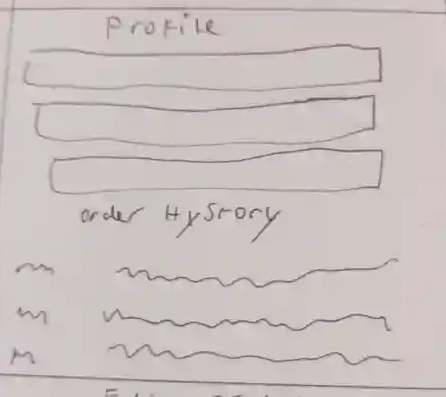 Profile
order HyStory